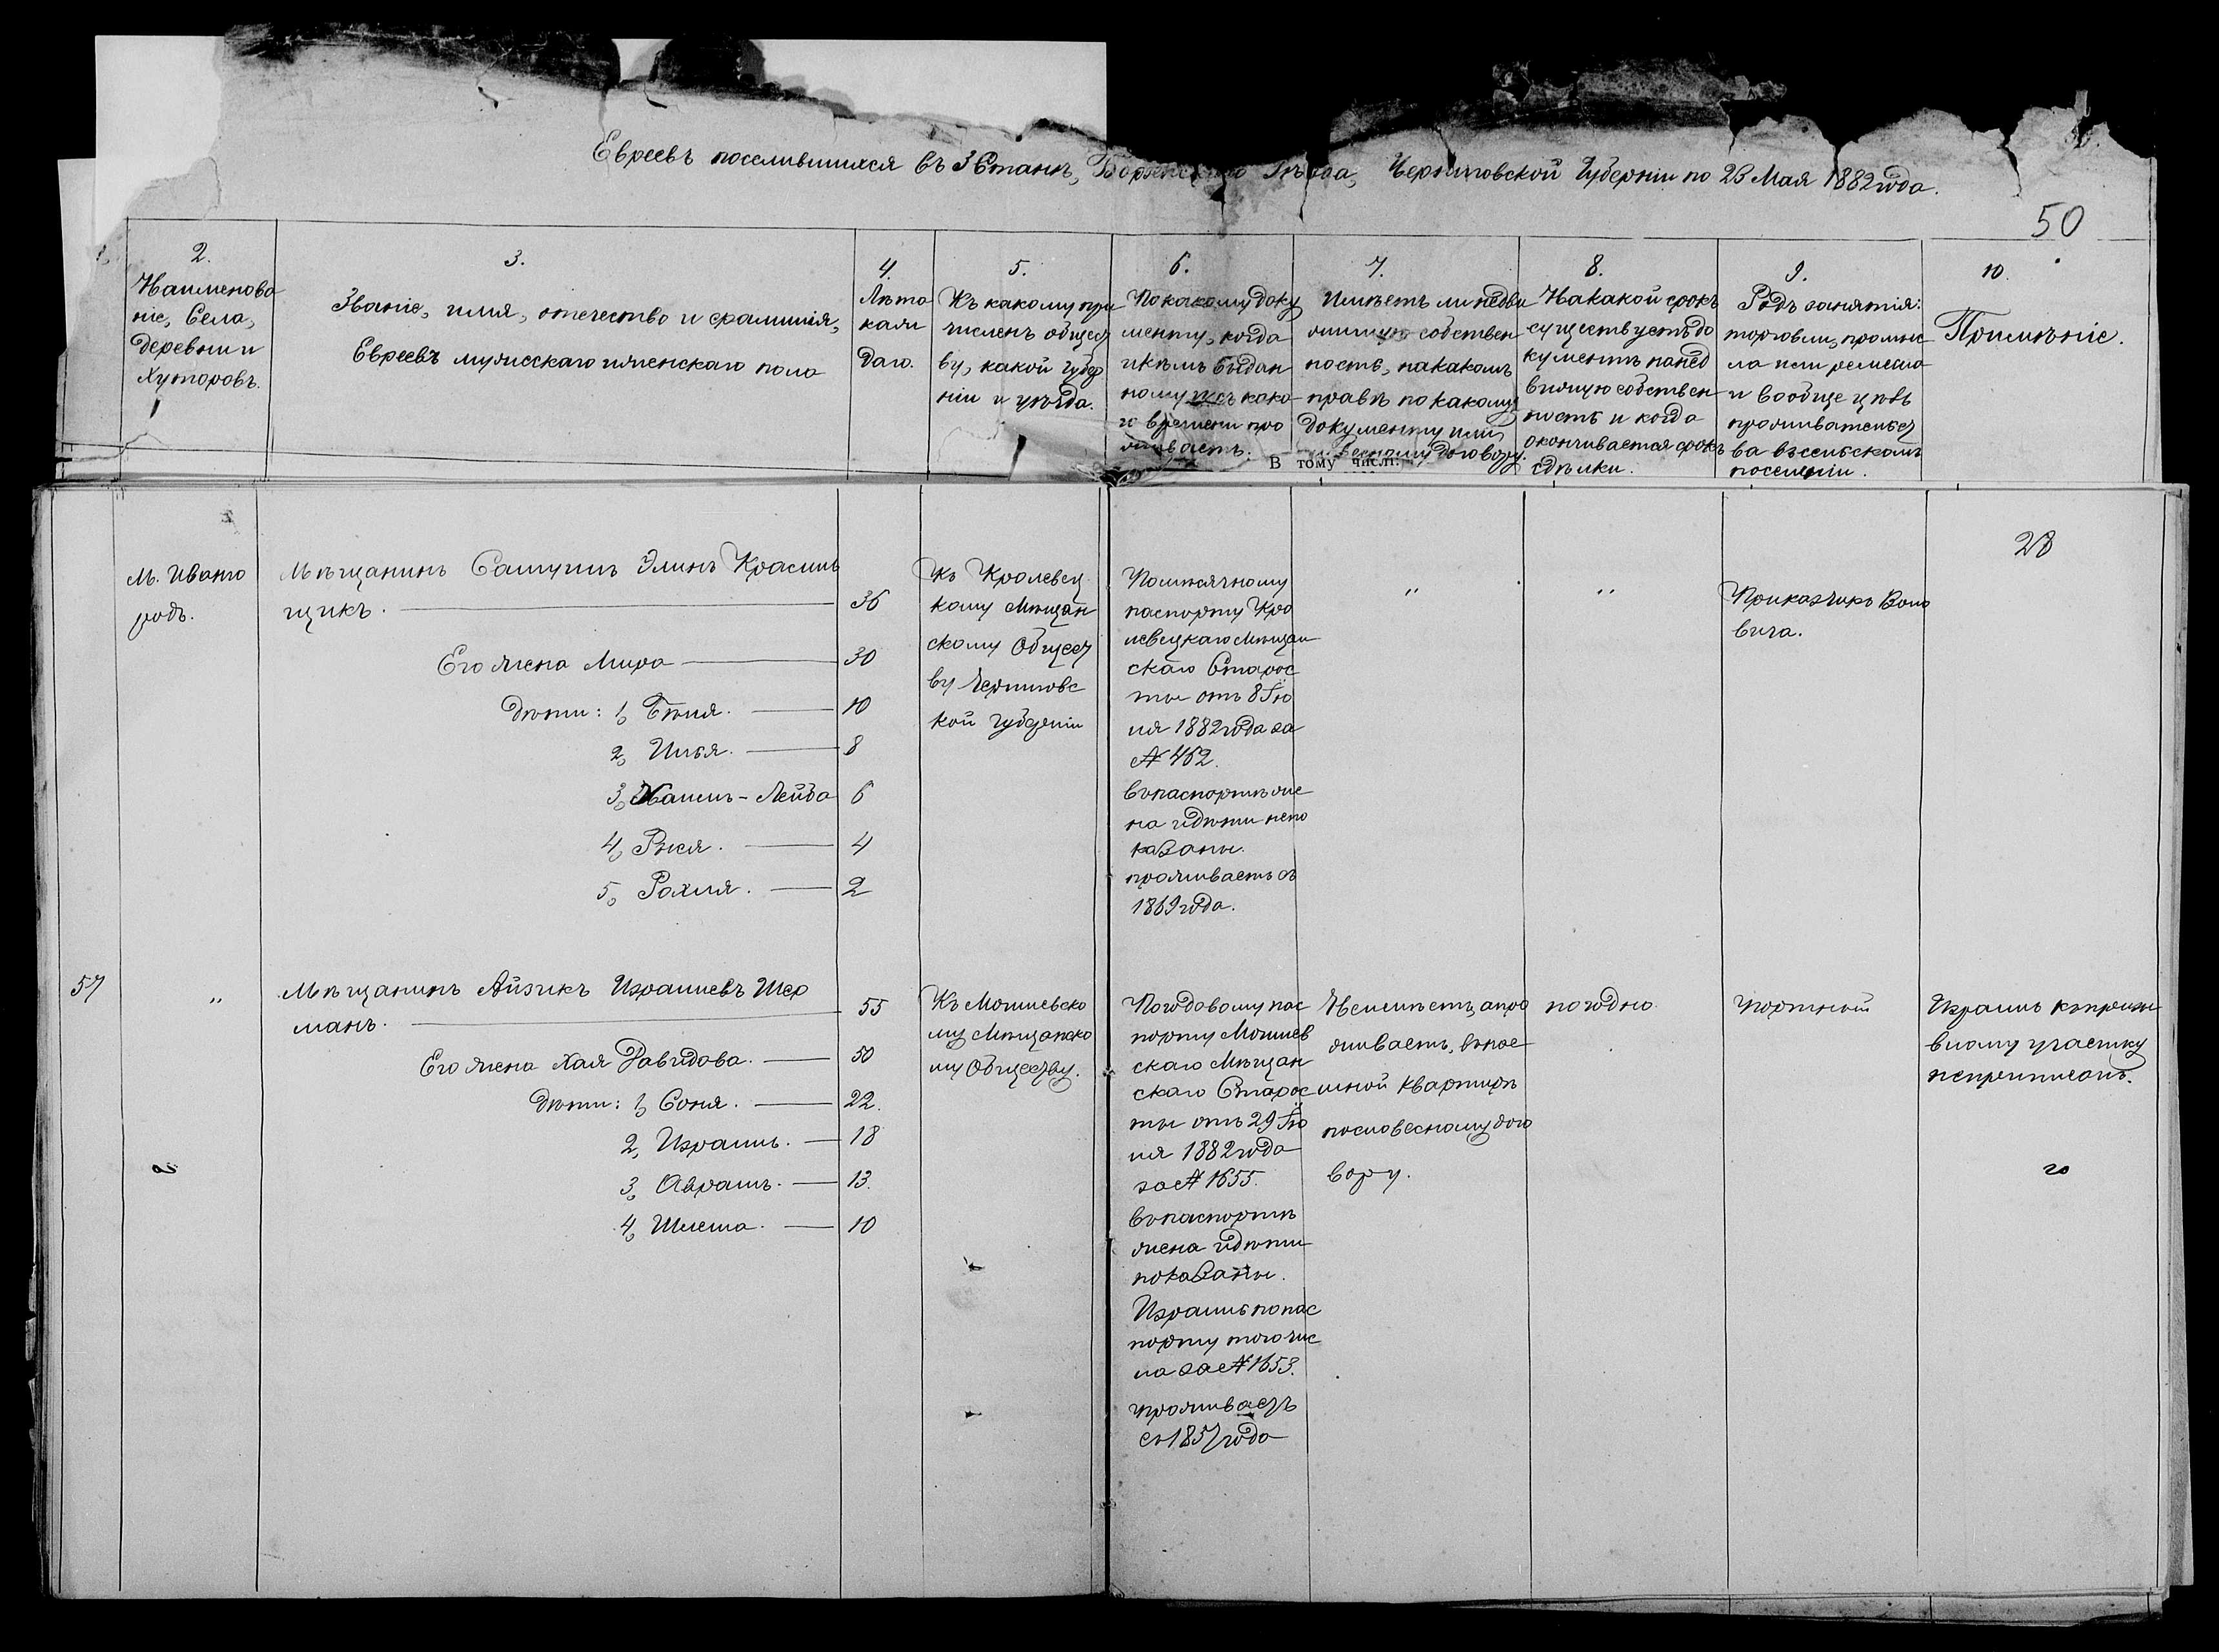 Евреевъ поселившихся въ 3 Станѣ, Борзенскаго Уѣзда, Черниговской Губерніи по 23 Мая 1882 года.
50
2.
Наименова
ніе, Села,
деревни и
Хуторовъ.
3.
Званіе, имя, отечество и фамилія,
Евреевъ мужескаго и женскаго пола
4.
Лѣта
каж
даго.
5.
Къ какому при
численъ общест
ву, какой губер
ніи и уѣзда.
6.
По какому доку
менту, когда
и кѣмъ выдан
ному и съ како
го времени про
живаетъ.
7.
Имѣетъ ли недви
жимую собствен
ность, на какомъ
правѣ по какому
документу или
словесному договору.
В тому числі:
8.
На какой срокъ
существуетъ до
кументъ на нед
вижую собствен
ность и когда
оканчивается срокъ
сдѣлки.
9.
Родъ занятія:
торговли, промыс
ла или ремесла
и вообще цѣль
прожительст
ва въ сельскомъ
поселеніи.
10.
Примѣніе.
28
М. Иваго
родъ.
Мѣщанинъ Самуилъ Элинъ Красиль
щикъ. 36
Его жена Мира 30
Дѣти: 1, Бейля. 10
2, Илья. 8
3, Хаимъ-Лейба 6
4, Рися. 4
5, Рахля. 2
Къ Кролевец
кому Мѣщан
скому Общест
ву Черниговс
кой губерніи
Помѣсячному
паспорту Кро
левецкаго Мѣщан
скаго Старос
ты отъ 8 Ію
ля 1882 года за
№ 462.
въ паспортѣ же
на и дѣти непо
казаны.
проживаетъ съ
1869 года.
"
"
Приказчикъ Воло
вича.
57
"
Мѣщанинъ Айзикъ Израилевъ Шер
манъ. 55
Его жена Хая Давидова. 50
Дѣти: 1, Соня. 22.
2, Израиль. 18
3, Аврамъ. 13.
4, Шлема. 10
Къ Могилевско
му Мѣщанско
му Обществу.
Погодовому пас
порту Могилев
скаго Мѣщан
скаго Старос
ты отъ 29 Ію
ля 1882 года
за № 1655.
въ паспортѣ
жена и дѣти
показаны.
Израиль по пас
порту того чис
ла за № 1653.
проживаетъ
съ 1857 года
Неимѣетъ, а про
живаетъ, въ нае
мной квартирѣ
пословесному дого
вору.
погодно
портный
Израиль къ призы
вному участку
неприписанъ.